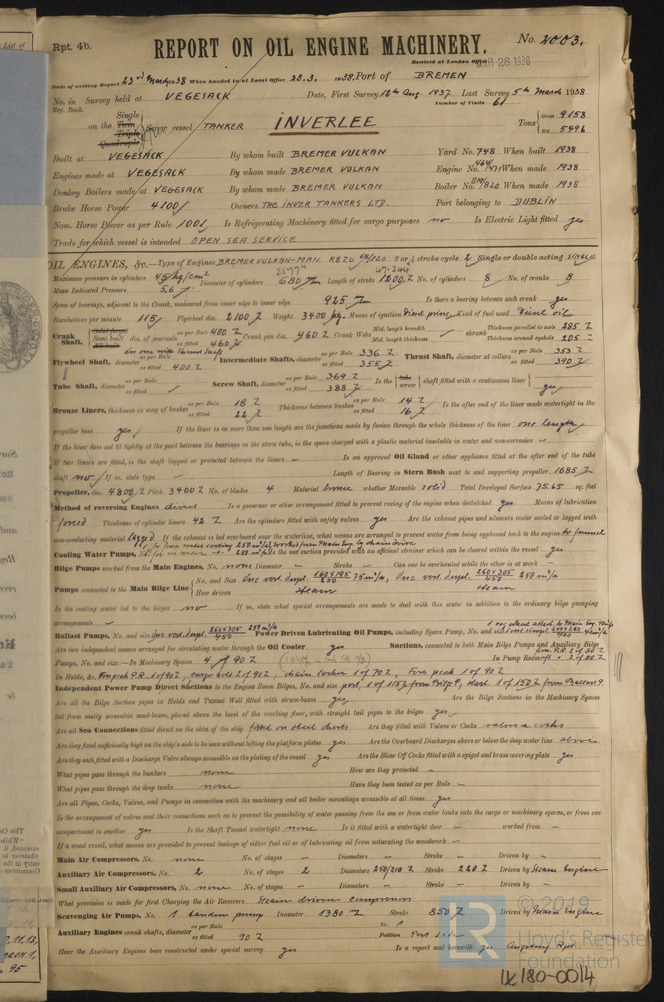 Rpt. 4b.
REPORT ON OIL ENGINE MACHINERY.
No. 2003.
Received at London Office
MAR 28 1938
Date of writing Report 23rd March 1938 When handed in at Local Office 28.3. 1938. Port of BREMEN
No. in Survey held at VEGESACK Date, First Survey 12th Aug. 1937 Last Survey 5th March 1938
Reg. Book. Number of Visits 61
on the Single Twin Triple Quadruple Screw vessel TANKER INVERLEE Tons Gross 9158 Net 5496
Built at VEGESACK By whom built BREMER VULKAN Yard No. 748 When built 1938
Engines made at VEGESACK By whom made BREMER VULKAN Engine No. When made 1938
Donkey Boilers made at VEGESACK By whom made BREMER VULKAN Boiler No. When made 1938
Brake Horse Power 4100 Owners THE INVER TANKERS LTD. Port belonging to DUBLIN
Nom. Horse Power as per Rule 1001 Is Refrigerating Machinery fitted for cargo purposes no Is Electric Light fitted yes
Trade for which vessel is intended OPEN SEA SERVICE
OIL ENGINES, &c.—Type of Engines BREMER VULKAN-MAN. 2 or 4 stroke cycle 2 Single or double acting SINGLE
Maximum pressure in cylinders 45 kg/cm2 Diameter of cylinders 680 Length of stroke 1200 No. of cylinders 8 No. of cranks 8
Mean Indicated Pressure 5,6
Span of bearings, adjacent to the Crank, measured from inner edge to inner edge 925 Is there a bearing between each crank yes
Revolutions per minute 115 Flywheel dia. 2100 Weight 3400 kg. Means of ignition Kind of fuel used Diesel oil
Crank Shaft, Solid forged Semi built All built dia. of journals as per Rule 400 as fitted 460 Crank pin dia. 460 Crank Webs Mid. length breadth Mid. length thickness shrunk Thickness parallel to axis 285 Thickness around eyehole 205
Flywheel Shaft, diameter as per Rule as fitted 400 Intermediate Shafts, diameter as per Rule 336 as fitted 355 Thrust Shaft, diameter at collars as per Rule 353 as fitted 390
Tube Shaft, diameter as per Rule as fitted Screw Shaft, diameter as per Rule 369 as fitted 388 Is the tube screw shaft fitted with a continuous liner yes
Bronze Liners, thickness in way of bushes as per Rule 18 as fitted 22 Thickness between bushes as per Rule 14 as fitted 16 Is the after end of the liner made watertight in the
propeller boss yes If the liner is in more than one length are the junctions made by fusion through the whole thickness of the liner one length
If the liner does not fit tightly at the part between the bearings in the stern tube, is the space charged with a plastic material insoluble in water and non-corrosive –
If two liners are fitted, is the shaft lapped or protected between the liners – Is an approved Oil Gland or other appliance fitted at the after end of the tube
shaft no If so, state type – Length of Bearing in Stern Bush next to and supporting propeller 1685
Propeller, dia. 4800 Pitch 3400 No. of blades 4 Material bronze whether Moveable solid Total Developed Surface 75.65 sq. feet
Method of reversing Engines direct Is a governor or other arrangement fitted to prevent racing of the engine when declutched yes Means of lubrication
forced Thickness of cylinder liners 42 Are the cylinders fitted with safety valves yes Are the exhaust pipes and silencers water cooled or lagged with
non-conducting material lagged If the exhaust is led overboard near the waterline, what means are arranged to prevent water from being syphoned back to the engine to funnel
Cooling Water Pumps, No. Is the sea suction provided with an efficient strainer which can be cleared within the vessel yes
Bilge Pumps worked from the Main Engines, No. none Diameter – Stroke – Can one be overhauled while the other is at work –
Pumps connected to the Main Bilge Line No. and Size One vert. dupl. 75 m³/h, One vert. dupl. 260x305/450 258 m³/h
How driven steam steam
Is the cooling water led to the bilges no If so, state what special arrangements are made to deal with this water in addition to the ordinary bilge pumping
arrangements –
Ballast Pumps, No. and size One vert. dupl. 260x305/450 258 m³/h Power Driven Lubricating Oil Pumps, including Spare Pump, No. and size
Are two independent means arranged for circulating water through the Oil Cooler yes Suctions, connected to both Main Bilge Pumps and Auxiliary Bilge
Pumps, No. and size:—In Machinery Spaces 4 of 90 In Pump Room
In Holds, &c. 1 of 90, cargo hold 2 of 90, chain locker 1 of 70, Fore peak 1 of 90
Independent Power Pump Direct Suctions to the Engine Room Bilges, No. and size port. 1 of 115 from Bilge P., stbd. 1 of 150 from Ballast P.
Are all the Bilge Suction pipes in Holds and Tunnel Well fitted with strum-boxes yes Are the Bilge Suctions in the Machinery Spaces
led from easily accessible mud-boxes, placed above the level of the working floor, with straight tail pipes to the bilges yes
Are all Sea Connections fitted direct on the skin of the ship fitted on steel chests Are they fitted with Valves or Cocks valves & cocks
Are they fixed sufficiently high on the ship's side to be seen without lifting the platform plates yes Are the Overboard Discharges above or below the deep water line above
Are they each fitted with a Discharge Valve always accessible on the plating of the vessel yes Are the Blow Off Cocks fitted with a spigot and brass covering plate yes
What pipes pass through the bunkers none How are they protected –
What pipes pass through the deep tanks none Have they been tested as per Rule –
Are all Pipes, Cocks, Valves, and Pumps in connection with the machinery and all boiler mountings accessible at all times yes
Is the arrangement of valves and their connections such as to prevent the possibility of water passing from the sea or from water tanks into the cargo or machinery spaces, or from one
compartment to another yes Is the Shaft Tunnel watertight none Is it fitted with a watertight door – worked from –
If a wood vessel, what means are provided to prevent leakage of either fuel oil or of lubricating oil from saturating the woodwork –
Main Air Compressors, No. none No. of stages – Diameters – Stroke – Driven by –
Auxiliary Air Compressors, No. 2 No. of stages 2 Diameters 250/210 Stroke 220 Driven by Steam Engine
Small Auxiliary Air Compressors, No. none No. of stages – Diameters – Stroke – Driven by –
What provision is made for first Charging the Air Receivers Steam driven compressors
Scavenging Air Pumps, No. 1 tandem pump Diameter 1380 Stroke 850 Driven by Main Engine
Auxiliary Engines crank shafts, diameter as per Rule as fitted 90 No. 1 Position Port side
Have the Auxiliary Engines been constructed under special survey yes Is a report sent herewith yes
© 2019
LR
Lloyd's Register
Foundation
LR180-0014